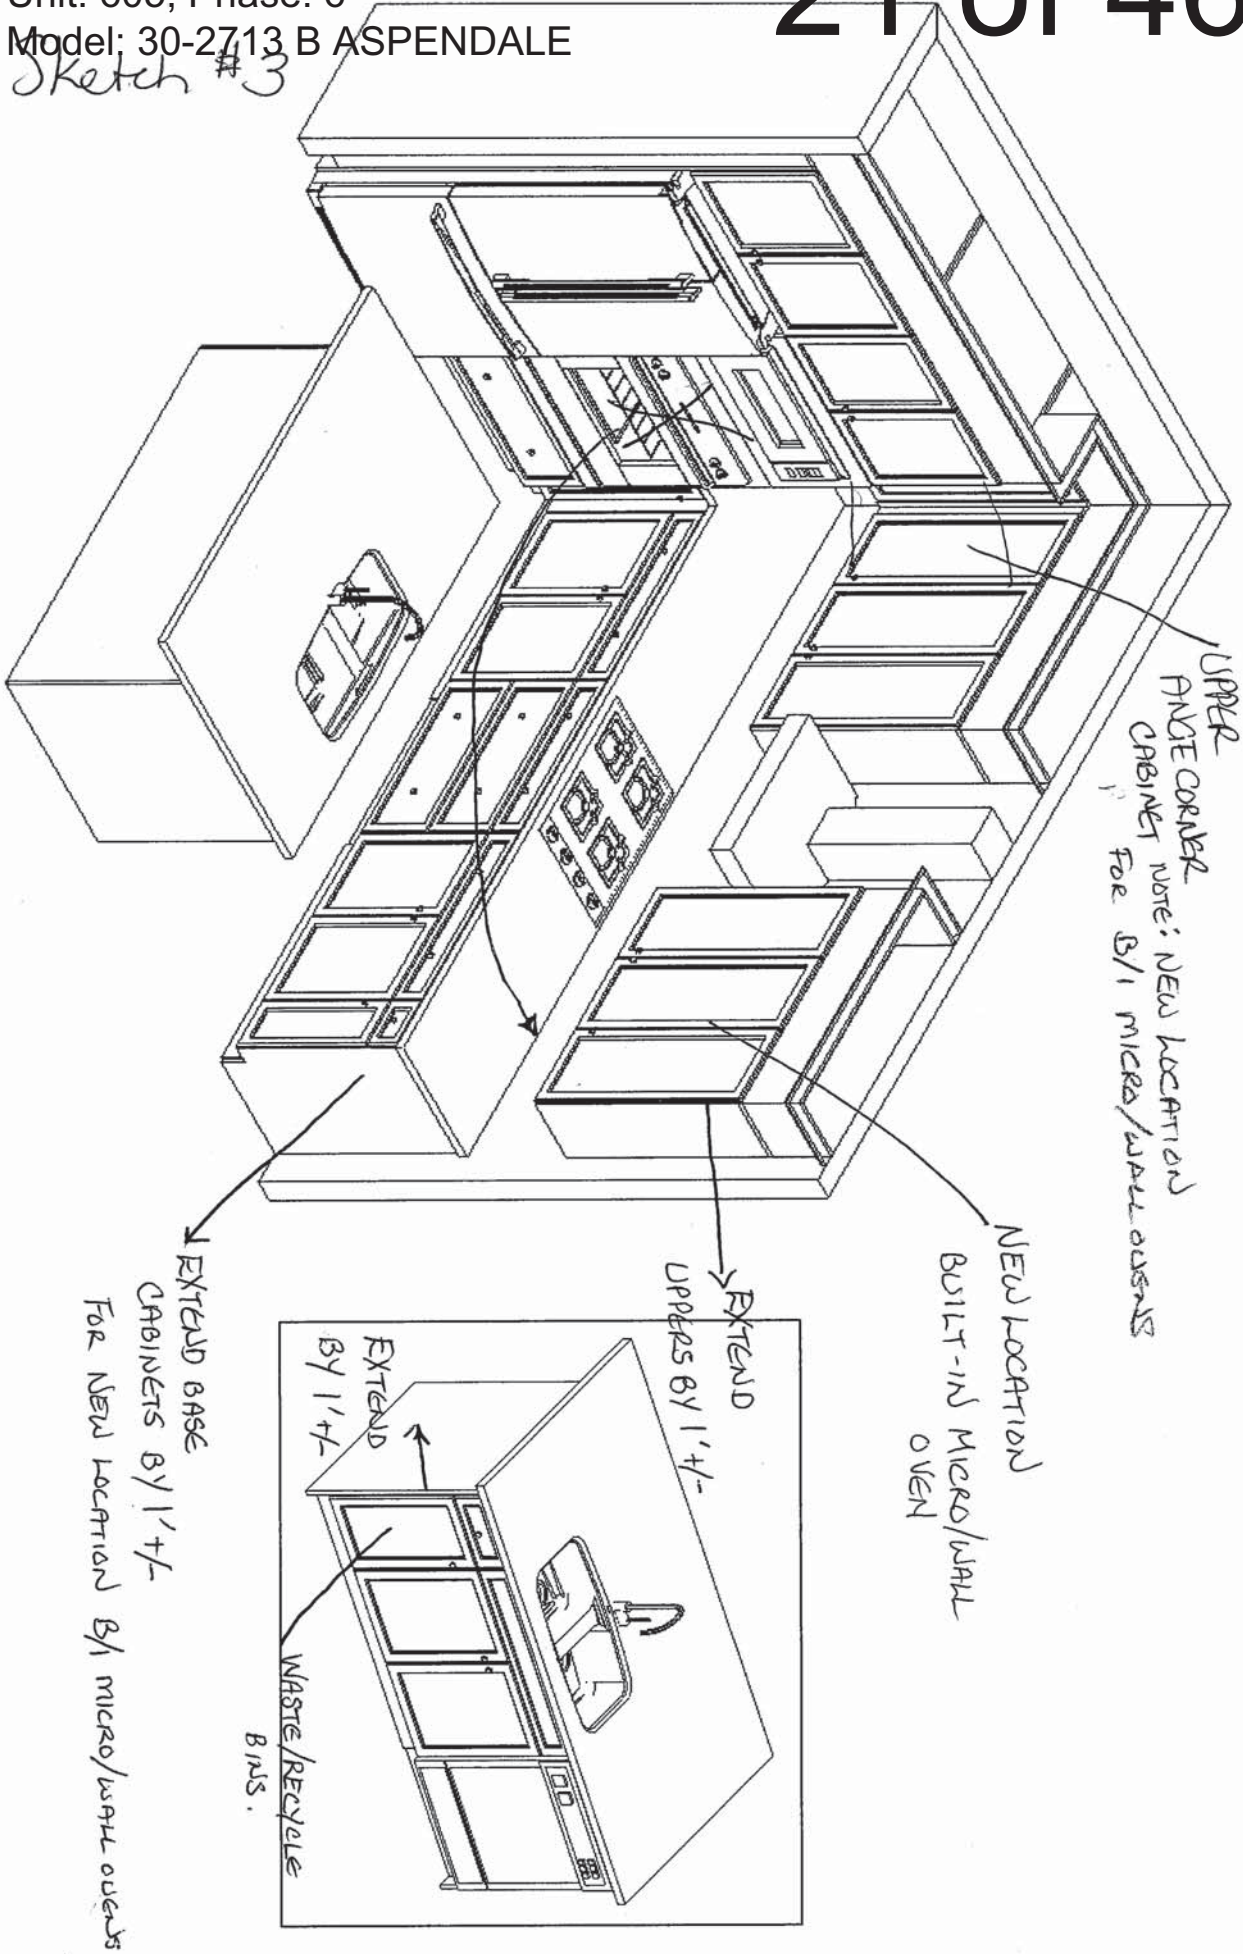 Model: 30-2713 B ASPENDALE
21 of 46
Sketch #3
UPPER
ANGE CORNER
CABINET NOTE: NEW LOCATION
FOR B/I MICRO/WALL OVENS
NEW LOCATION
BUILT-IN MICRO/WALL
OVEN
EXTEND
UPPERS BY 1'+/-
EXTEND
BY 1'+/-
WASTE/RECYCLE
BINS.
EXTEND BASE
CABINETS BY 1'+/-
FOR NEW LOCATION B/I MICRO/WALL OVENS